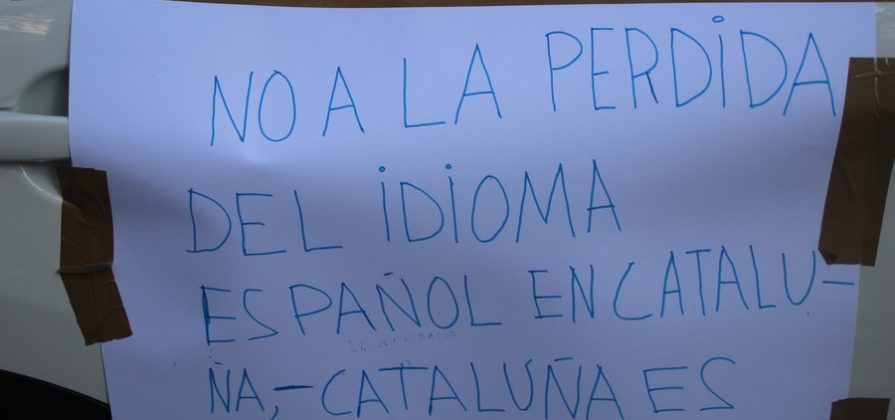 NO A LA PERDIDA
DEL IDIOMA
ESPAÑOL EN CATALU-
ÑA,-CATALUÑA ES